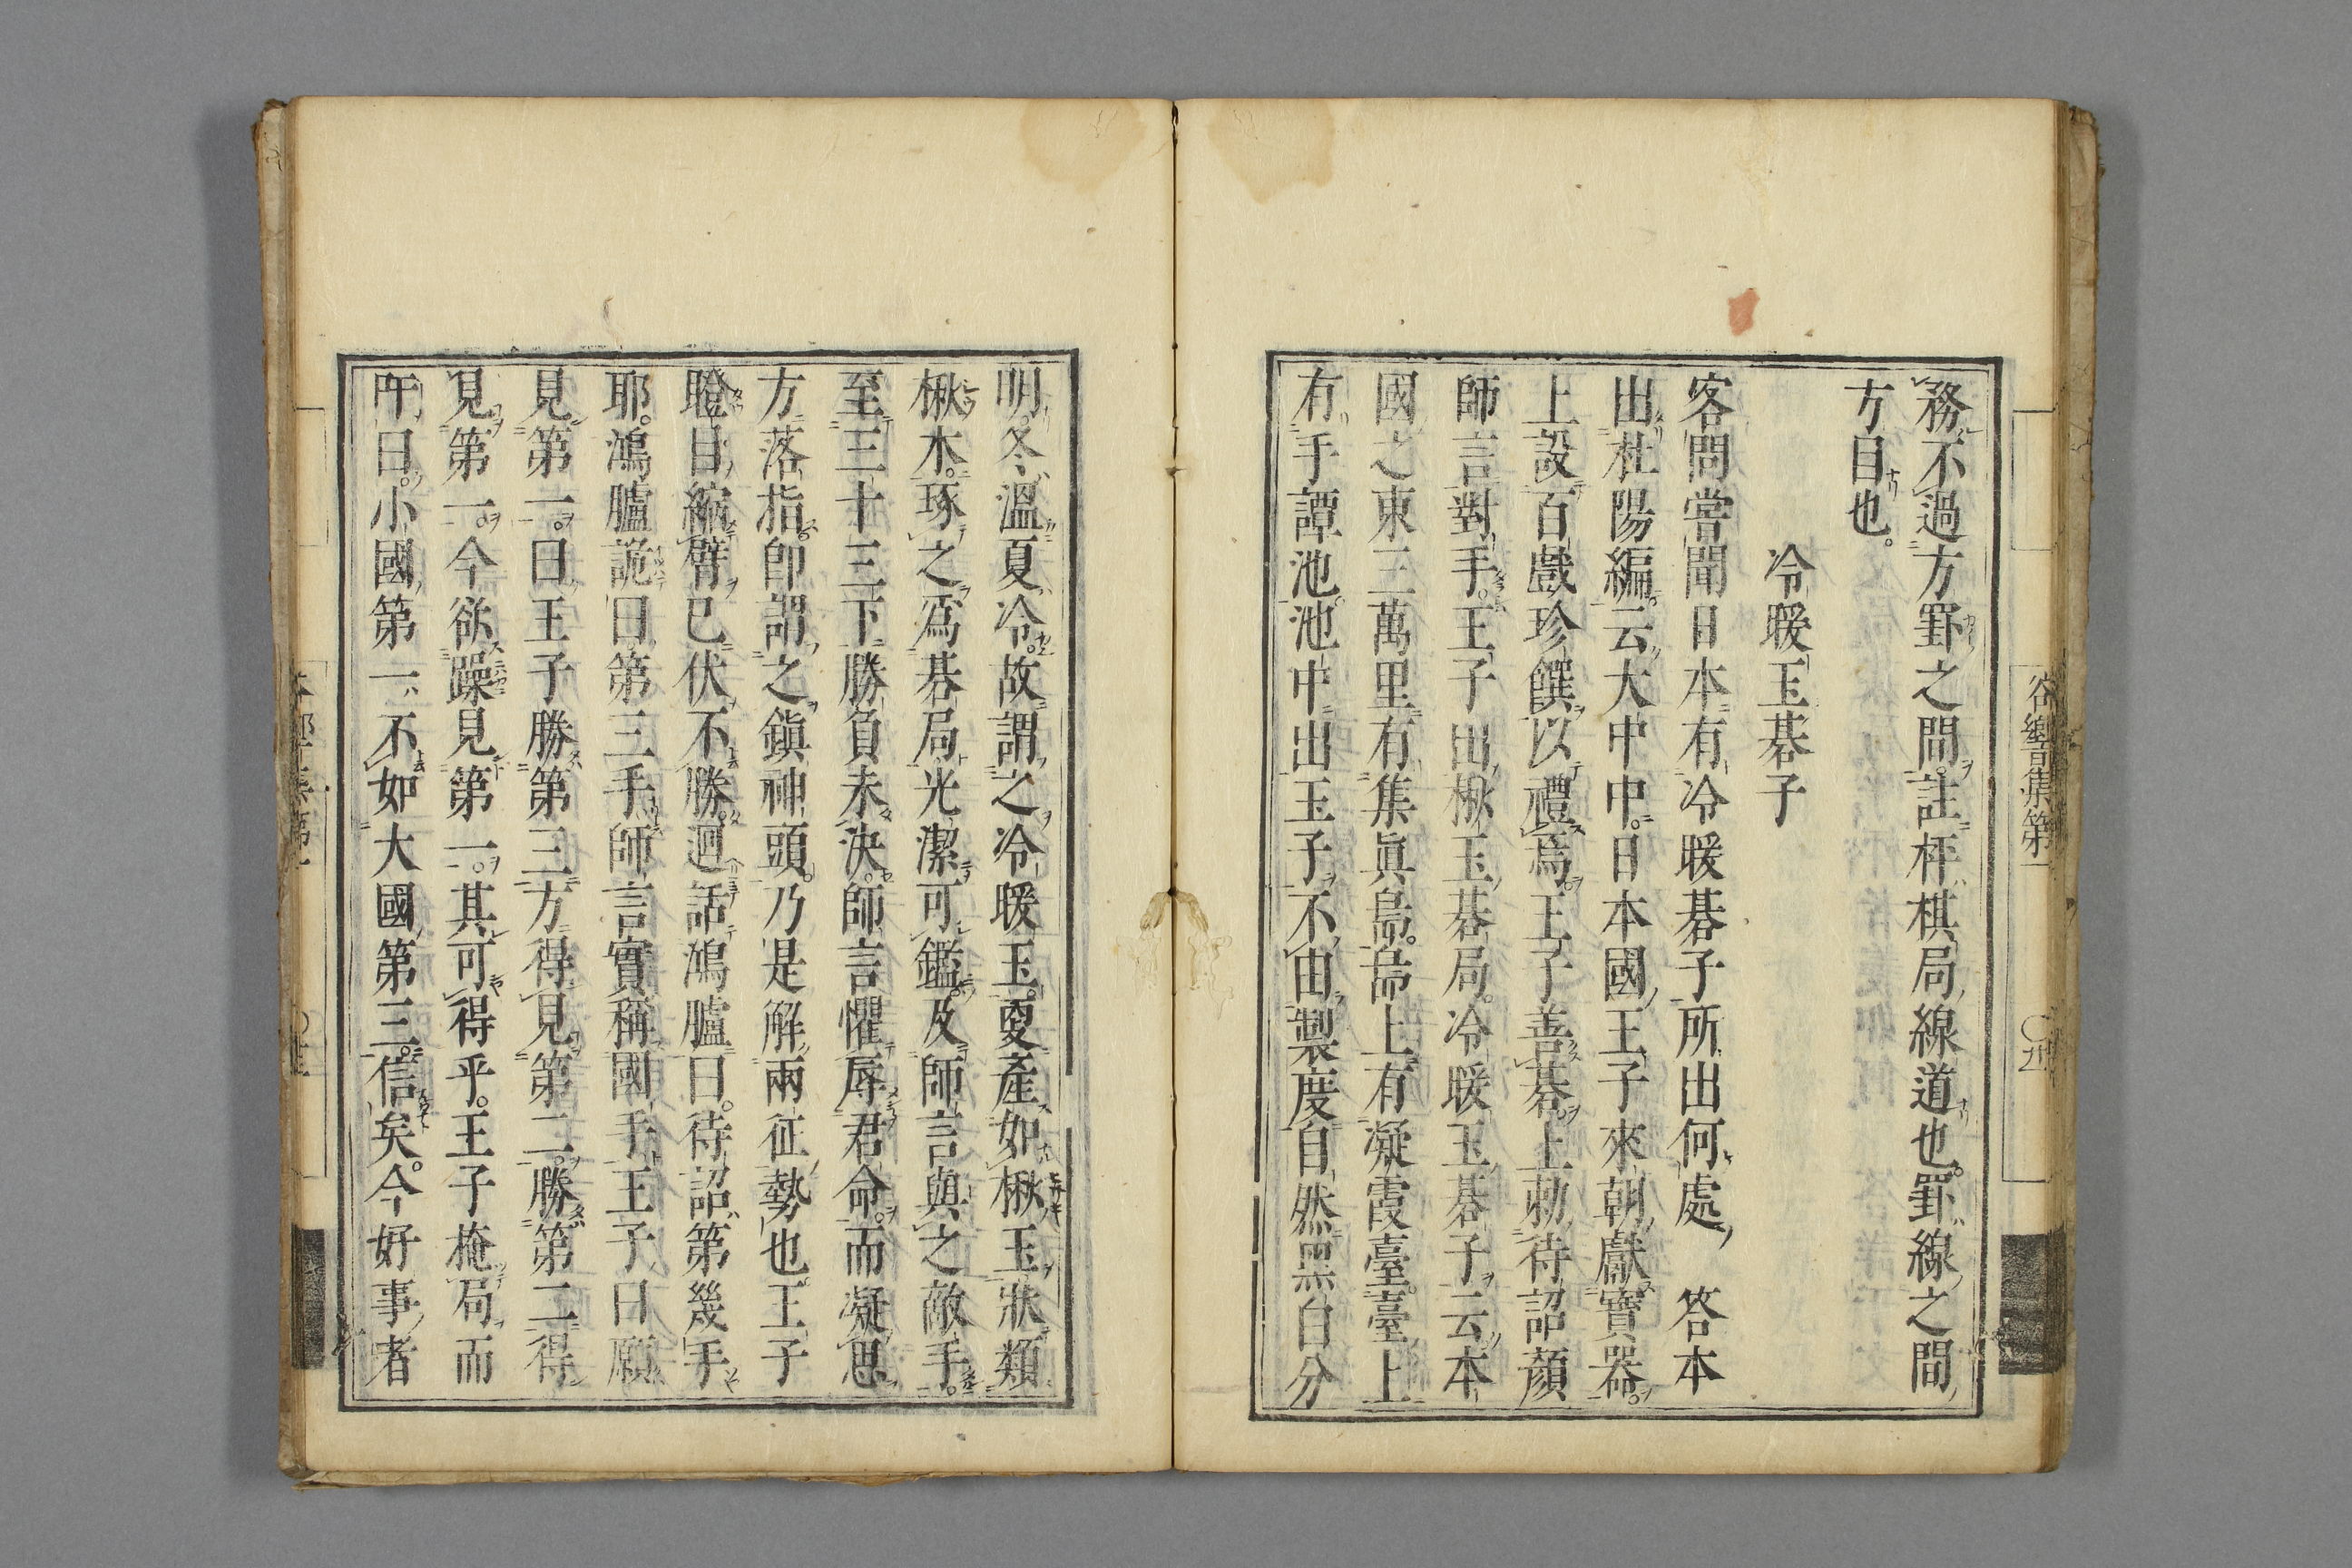 務不過方罫之間註枰棋局線道也罫線之間
方目也。
冷暖玉碁子
客問嘗聞日本有冷暖碁子所出何處 答本
出杜陽編云大中中。日本國王子來朝獻寶器。
上設百戲珍饌以禮焉。王子善碁。上勅待詔顏
師言對手。王子出楸玉碁局。冷暖玉碁子云本
國之東三萬里有集眞島。島上有凝霞臺。臺上
有手譚池。池中出玉子不由製度自然黑白分
明冬溫夏冷。故謂之冷暖玉。更產如楸玉狀類
楸木。琢之爲碁局光潔可鑑。及師言與之敵手。
至三十三下勝負未決。師言懼辱君命。而凝思
方落指卽謂之鎭神頭。乃是解兩征勢也王子
瞪目縮臂已伏不勝。迴話鴻臚曰。待詔第幾手
耶。鴻臚詭曰第三手師言實稱國手王子曰願
見第一。曰王子勝第三方得見第二。勝第二得
見第一。今欲躁見第一。其可得乎。王子掩局而
吁曰。小國第一不如大國第三。信矣。今好事者
谷響集第一